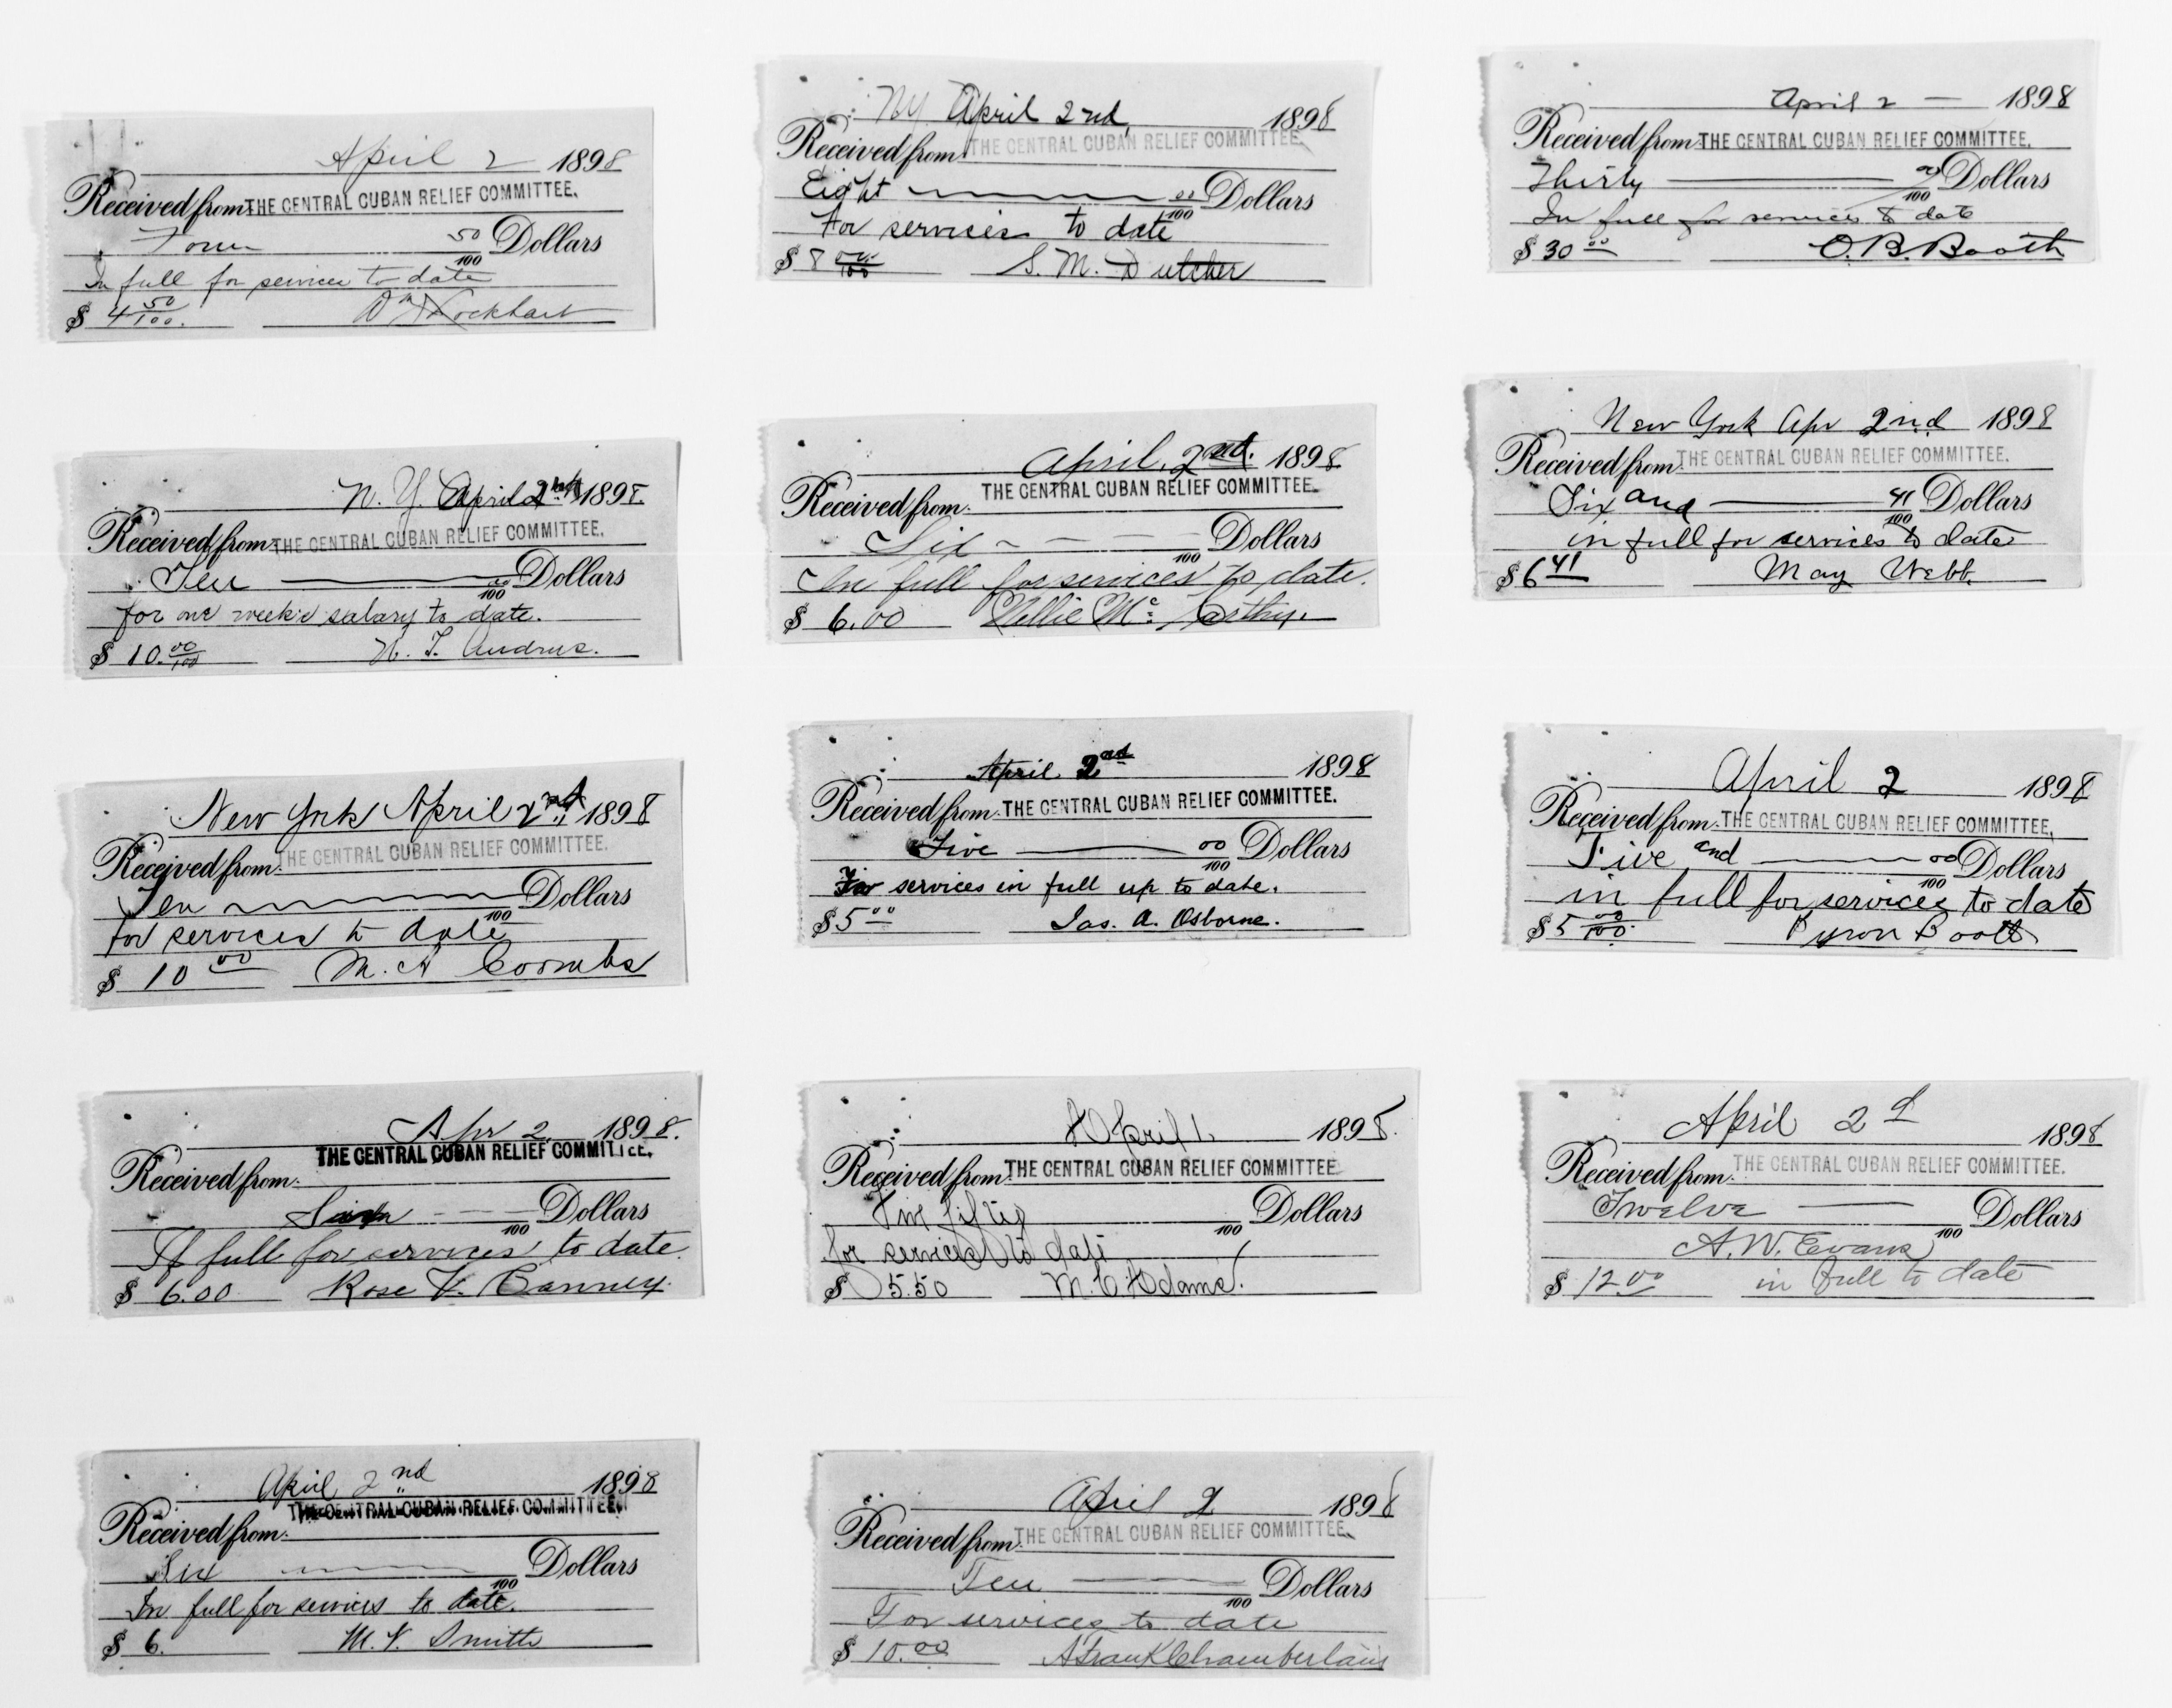 April 2 1898
Received from THE CENTRAL CUBAN RELIEF COMMITTEE.
Four 50/100 Dollars
In full for services to date
$ 4 50/100. Lockhart
N. Y. April 2nd 1898
Received from THE CENTRAL CUBAN RELIEF COMMITTEE.
Ten 00/100 Dollars
for one week's salary to date.
$ 10.00/100 T. Andrus.
New York April 2nd 1898
Received from THE CENTRAL CUBAN RELIEF COMMITTEE.
Ten 100 Dollars
for services to date
$ 10 00 M. A Coombs
Apr 2. 1898.
THE CENTRAL CUBAN RELIEF COMMITTEE.
Received from
Six 100 Dollars
If full for services to date.
$ 6.00 Rose V. Canney.
April 2nd 1898
THE CENTRAL CUBAN RELIEF COMMITTEE.
Received from
Six 100 Dollars
In full for services to date.
$ 6. M. V. Smith
NY. April 2nd, 1898
Received from THE CENTRAL CUBAN RELIEF COMMITTEE.
Eight 00/100 Dollars
for services to date
$ 8 00/100 S. M. Dutcher
April, 2nd. 1898
THE CENTRAL CUBAN RELIEF COMMITTEE.
Received from
Six - - - - 100 Dollars
In full for services to date.
$ 6.00 Nellie Mc: Carthy.
April 2nd 1898
Received from THE CENTRAL CUBAN RELIEF COMMITTEE.
Five 00/100 Dollars
For services in full up to date.
$ 5 00 Jas. A. Osborne.
April 1. 1898.
Received from THE CENTRAL CUBAN RELIEF COMMITTEE
Five fifty 100 Dollars
for services to date
$ 5.50 M. C. Adams.
April 2 1898
Received from THE CENTRAL CUBAN RELIEF COMMITTEE.
Ten 100 Dollars
For services to date
$ 10.00 A Frank Chamberlain
April 2 — 1898
Received from THE CENTRAL CUBAN RELIEF COMMITTEE.
Thirty 00/100 Dollars
In full for services to date
$ 30 00 O. B. Booth
New York Apr 2nd 1898
Received from THE CENTRAL CUBAN RELIEF COMMITTEE.
Six and 41/100 Dollars
in full for services to date
$ 6 41 May Webb.
April 2 1898
Received from THE CENTRAL CUBAN RELIEF COMMITTEE.
Five and 00/100 Dollars
in full for services to date
$ 5 00/100. Byron Booth
April 2d 1898
THE CENTRAL CUBAN RELIEF COMMITTEE.
Received from
Twelve 100 Dollars
A. W. Evans
$ 12.00 in full to date